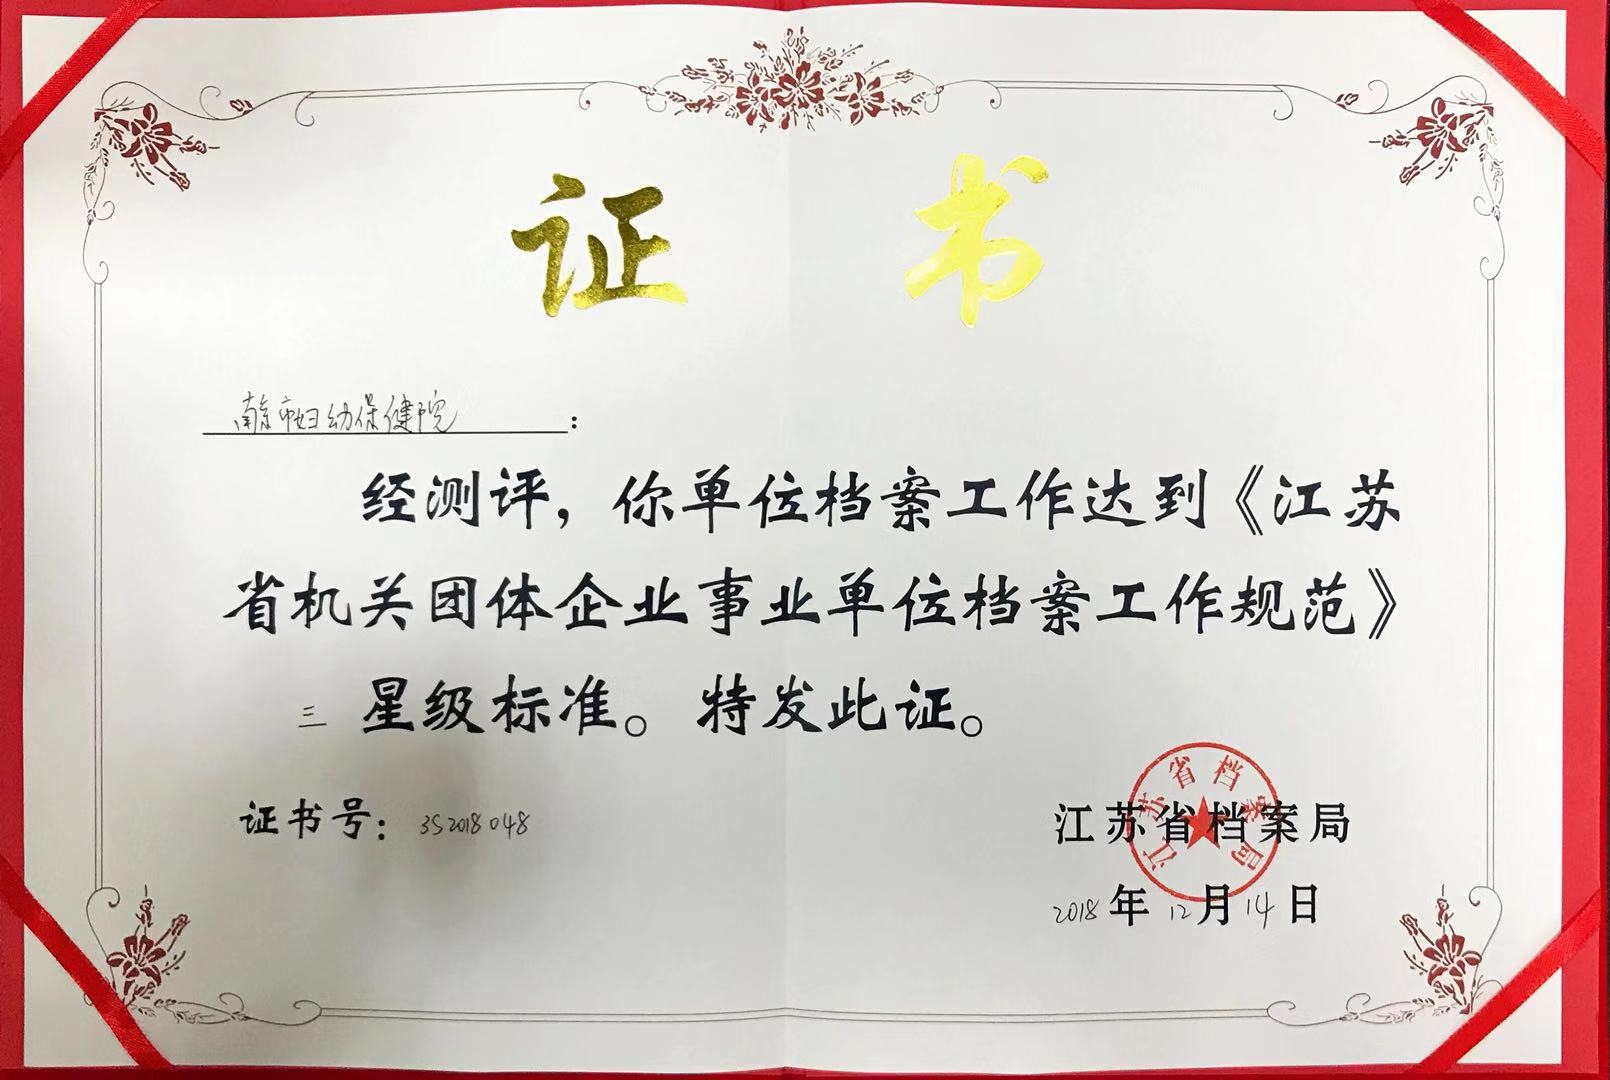 证书
南京市妇幼保健院：
经测评，你单位档案工作达到《江苏
省机关团体企业事业单位档案工作规范》
三 星级标准。特发此证。
证书号：3S2018048
江苏省档案局
江苏省档案局
2018年12月14日